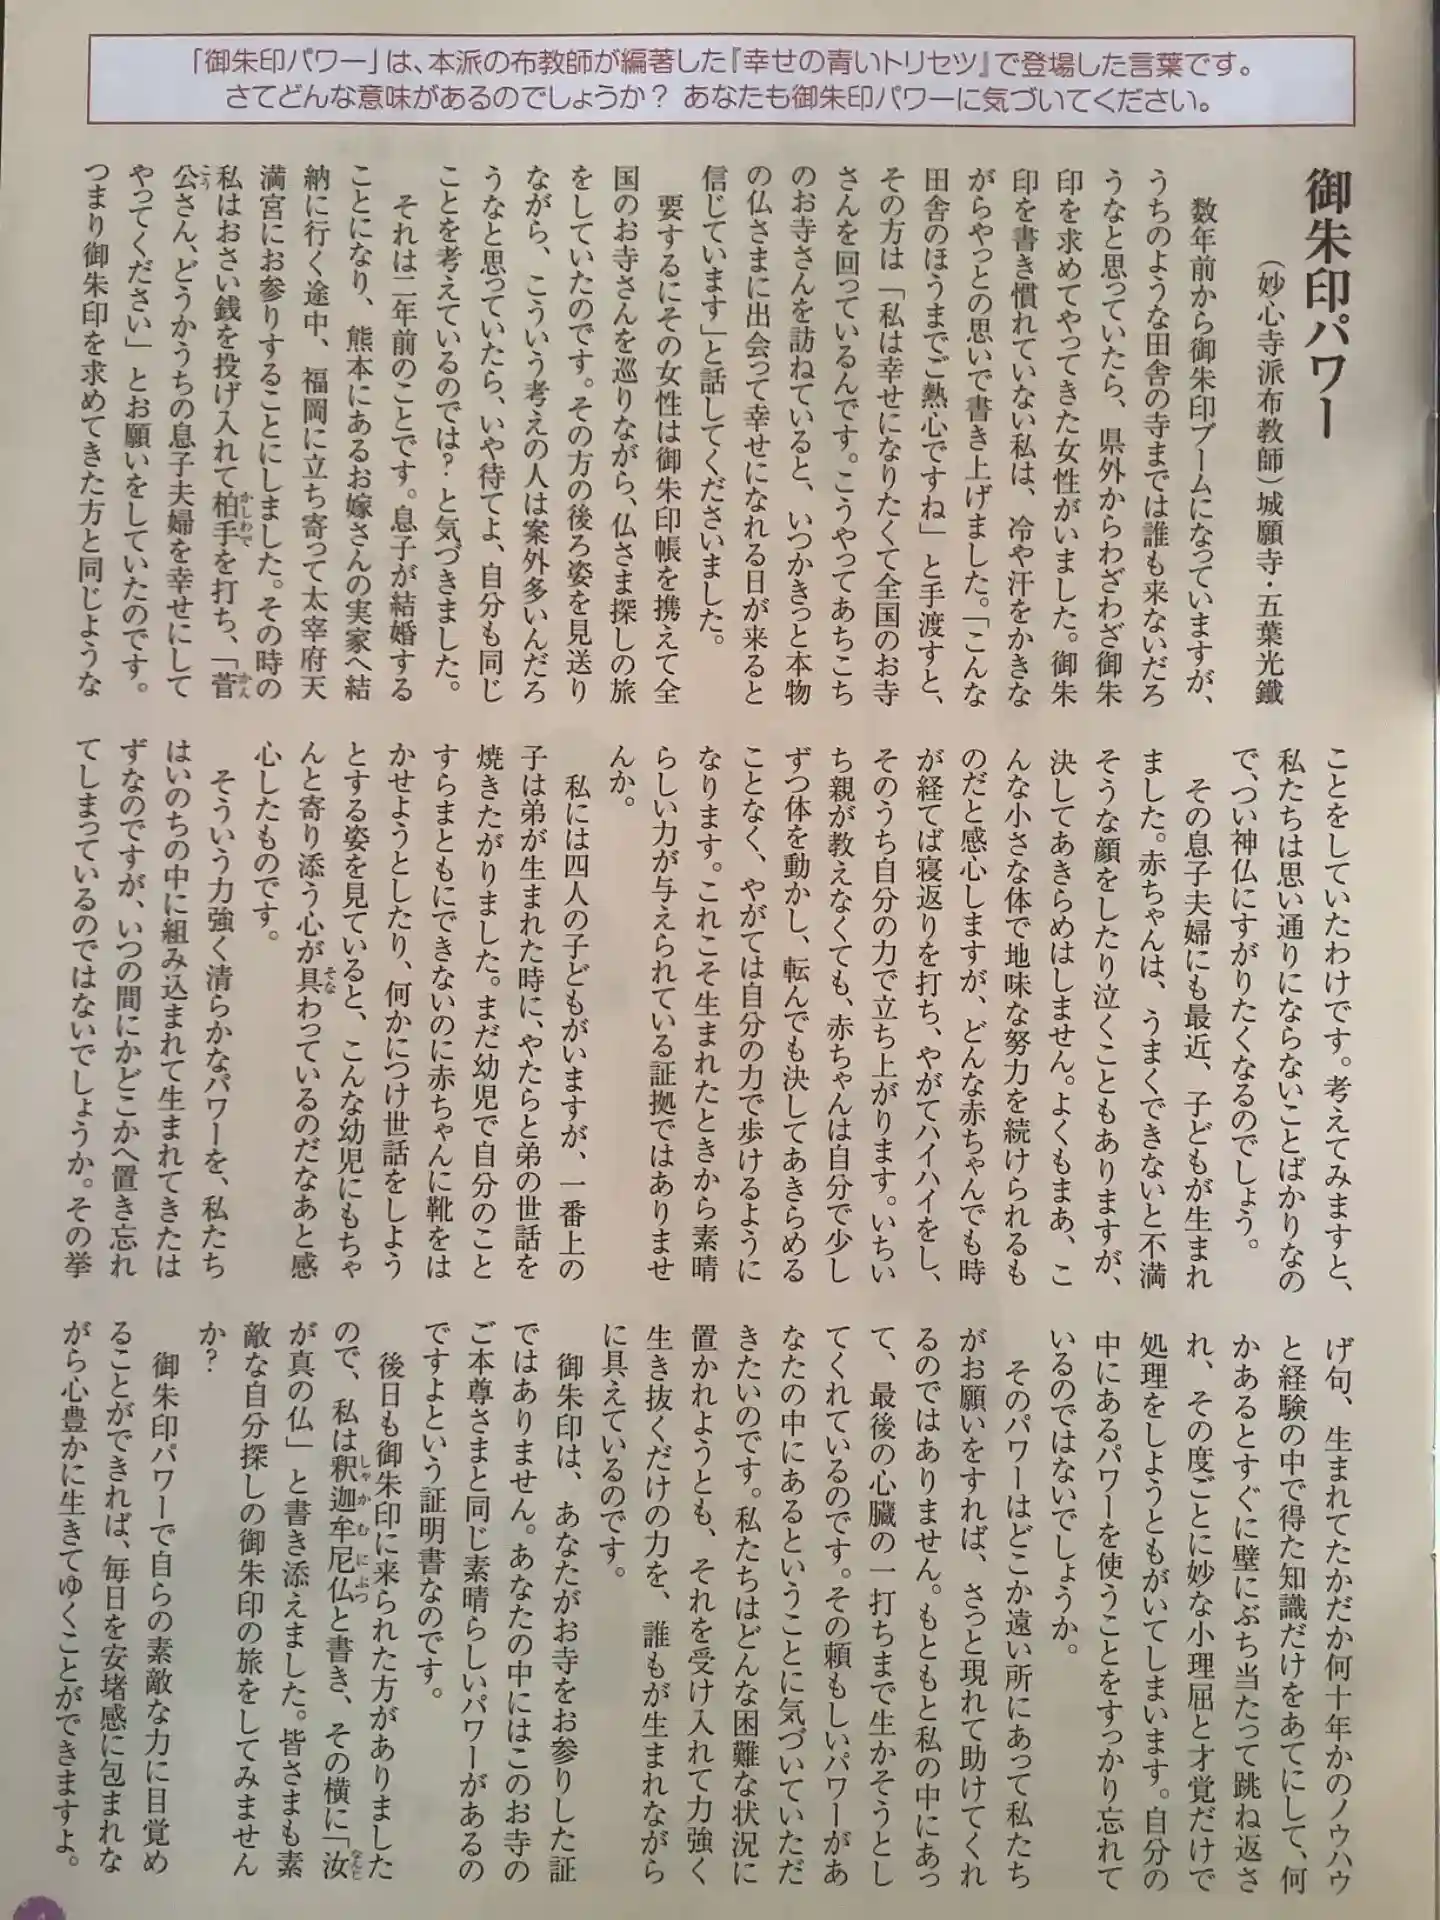 「御朱印パワー」は、本派の布教師が編著した『幸せの青いトリセツ』で登場した言葉です。
さてどんな意味があるのでしょうか？ あなたも御朱印パワーに気づいてください。
御朱印パワー
（妙心寺派布教師）城願寺・五葉光鐵
数年前から御朱印ブームになっていますが、
うちのような田舎の寺までは誰も来ないだろ
うなと思っていたら、県外からわざわざ御朱
印を求めてやってきた女性がいました。御朱
印を書き慣れていない私は、冷や汗をかきな
がらやっとの思いで書き上げました。「こんな
田舎のほうまでご熱心ですね」と手渡すと、
その方は「私は幸せになりたくて全国のお寺
さんを回っているんです。こうやってあちこち
のお寺さんを訪ねていると、いつかきっと本物
の仏さまに出会って幸せになれる日が来ると
信じています」と話してくださいました。
要するにその女性は御朱印帳を携えて全
国のお寺さんを巡りながら、仏さま探しの旅
をしていたのです。その方の後ろ姿を見送り
ながら、こういう考えの人は案外多いんだろ
うなと思っていたら、いや待てよ、自分も同じ
ことを考えているのでは？と気づきました。
それは二年前のことです。息子が結婚する
ことになり、熊本にあるお嫁さんの実家へ結
納に行く途中、福岡に立ち寄って太宰府天
満宮にお参りすることにしました。その時の
私はおさい銭を投げ入れて柏手を打ち、「菅
公さん、どうかうちの息子夫婦を幸せにして
やってください」とお願いをしていたのです。
つまり御朱印を求めてきた方と同じような
ことをしていたわけです。考えてみますと、
私たちは思い通りにならないことばかりなの
で、つい神仏にすがりたくなるのでしょう。
その息子夫婦にも最近、子どもが生まれ
ました。赤ちゃんは、うまくできないと不満
そうな顔をしたり泣くこともありますが、
決してあきらめはしません。よくもまあ、こ
んな小さな体で地味な努力を続けられるも
のだと感心しますが、どんな赤ちゃんでも時
が経てば寝返りを打ち、やがてハイハイをし、
そのうち自分の力で立ち上がります。いちい
ち親が教えなくても、赤ちゃんは自分で少し
ずつ体を動かし、転んでも決してあきらめる
ことなく、やがては自分の力で歩けるように
なります。これこそ生まれたときから素晴
らしい力が与えられている証拠ではありませ
んか。
私には四人の子どもがいますが、一番上の
子は弟が生まれた時に、やたらと弟の世話を
焼きたがりました。まだ幼児で自分のこと
すらまともにできないのに赤ちゃんに靴をは
かせようとしたり、何かにつけ世話をしよう
とする姿を見ていると、こんな幼児にもちゃ
んと寄り添う心が具わっているのだなあと感
心したものです。
そういう力強く清らかなパワーを、私たち
はいのちの中に組み込まれて生まれてきたは
ずなのですが、いつの間にかどこかへ置き忘れ
てしまっているのではないでしょうか。その挙
げ句、生まれてたかだか何十年かのノウハウ
と経験の中で得た知識だけをあてにして、何
かあるとすぐに壁にぶち当たって跳ね返さ
れ、その度ごとに妙な小理屈と才覚だけで
処理をしようともがいてしまいます。自分の
中にあるパワーを使うことをすっかり忘れて
いるのではないでしょうか。
そのパワーはどこか遠い所にあって私たち
がお願いをすれば、さっと現れて助けてくれ
るのではありません。もともと私の中にあっ
て、最後の心臓の一打ちまで生かそうとし
てくれているのです。その頼もしいパワーがあ
なたの中にあるということに気づいていただ
きたいのです。私たちはどんな困難な状況に
置かれようとも、それを受け入れて力強く
生き抜くだけの力を、誰もが生まれながら
に具えているのです。
御朱印は、あなたがお寺をお参りした証
ではありません。あなたの中にはこのお寺の
ご本尊さまと同じ素晴らしいパワーがあるの
ですよという証明書なのです。
後日も御朱印に来られた方がありました
ので、私は釈迦牟尼仏と書き、その横に「汝
が真の仏」と書き添えました。皆さまも素
敵な自分探しの御朱印の旅をしてみません
か？
御朱印パワーで自らの素敵な力に目覚め
ることができれば、毎日を安堵感に包まれな
がら心豊かに生きてゆくことができますよ。